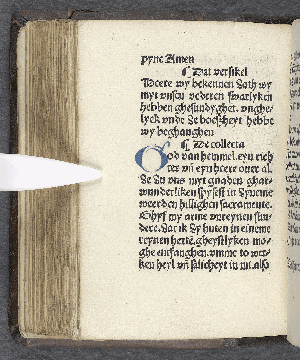 pyne Amen
¶ Dat versikel
Heere wy bekennen dath wy
myt vnsen vederen swarlyken
hebben ghesundyghet. vnghe-
lyck vnde de boescheyt hebbe
wy beghanghen
¶ De collecta
God van hemmel. eyn rich
ter vn̄ eyn heere ouer al.
de du vns myt gnaden
wunderliken spysest in dyneme
weerden hillighen sacramente.
Ghyf wy arme vnreynen sun-
dere. dat ik dy huten in eineme
reynen herte. gheystlyken mo-
ghe entfanghen. vmme to wer-
ken heyl vn̄ salicheyt in mi. also